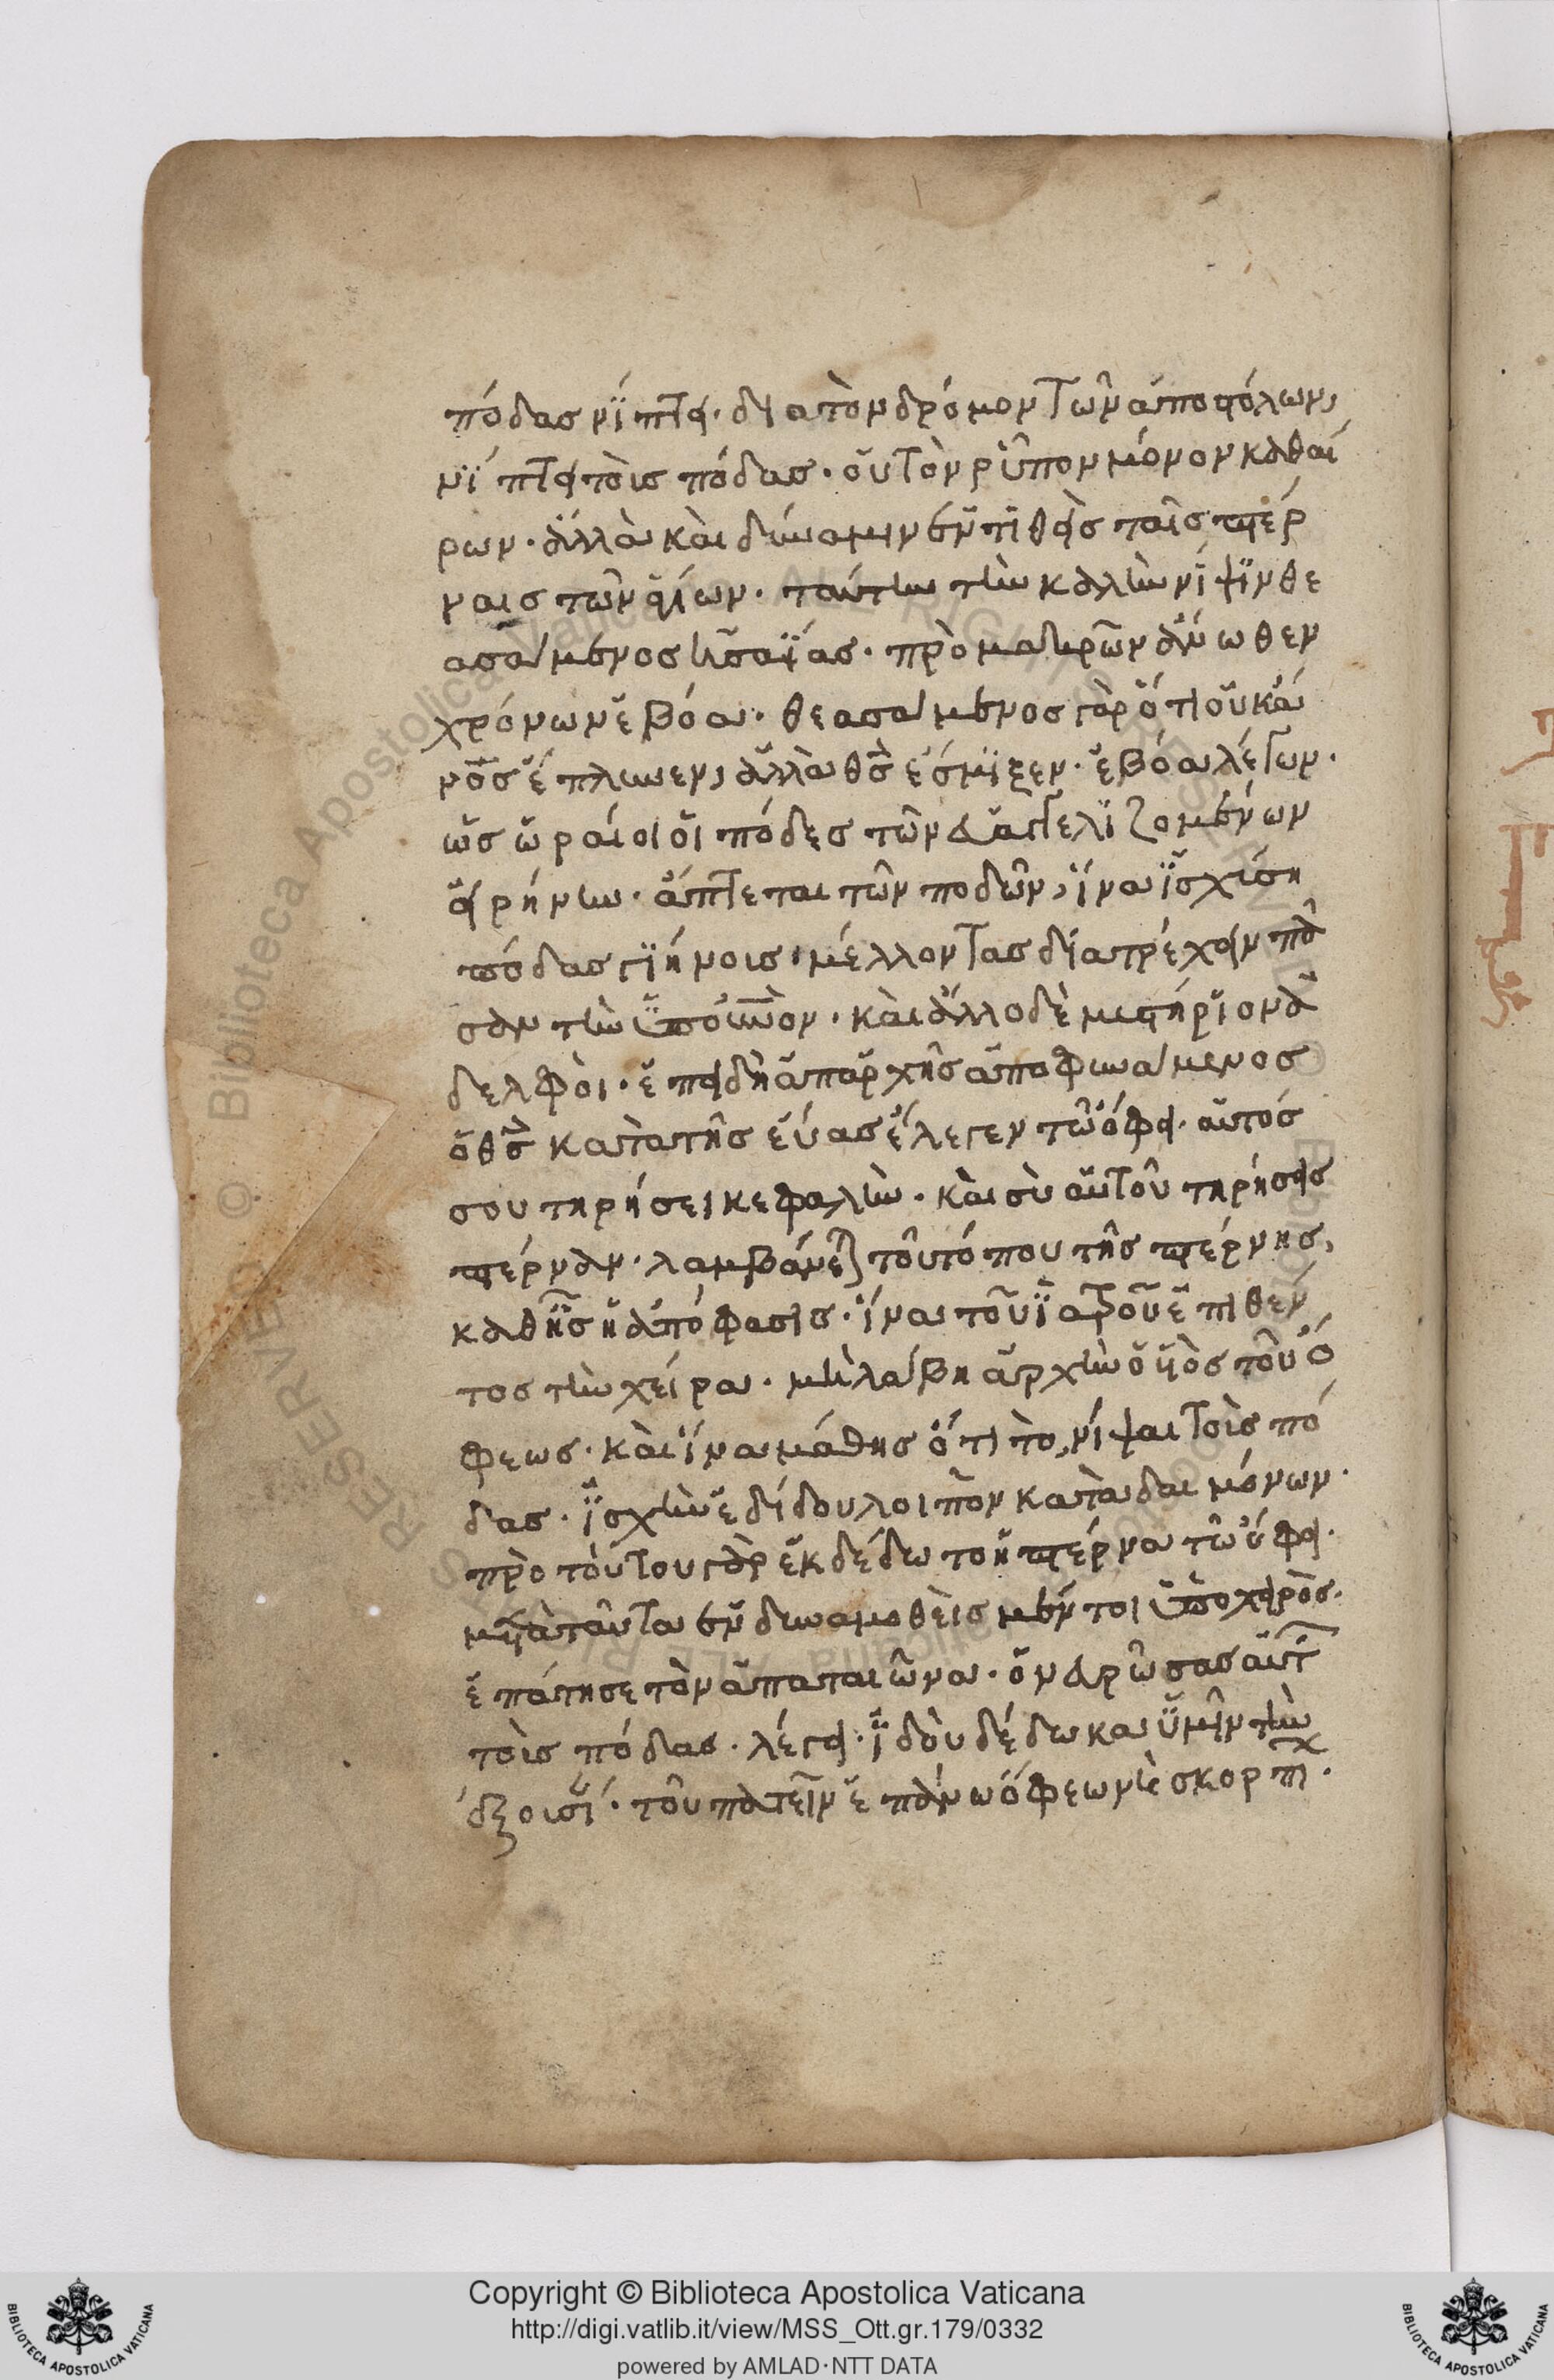 πόδας νίπτει· διὰ τὸν δρόμον τῶν ἀποστόλων,
νίπτει τοὺς πόδας· οὐ τὸν ρύπον μόνον καθαί
ρων· ἀλλὰ καὶ δύναμιν ἐντιθεὶς ταῖς πτέρ
ναις τῶν ἁγίων· ταύτην τὴν καλὴν νίψιν θε
ασάμενος ἡσαΐας· πρὸ μακρῶν ἄνωθεν
χρόνων ἐβόα· θεασάμενος γὰρ ὅτι οὐκ ἄν
νος ἔπλυνεν, ἀλλὰ θς ἔσμιξεν· ἐβόα λέγων·
ὡς ὡραίοι οἱ πόδες τῶν εὐαγγελιζομένων
εἰρήνην· ἅπτεται τῶν ποδῶν, ἵνα ἰσχύση
πόδας γηήνοις· μέλλοντας διατρέχειν πᾶ
σαν τὴν ὑπ' οὐνὸν· καὶ ἄλλο δὲ μυστήριον ἀ
δελφοί· ἐπειδὴ ἀπαρχῆς ἀποφηνάμενος
ὁ θς κατὰ τῆς εὔας ἔλεγεν τῶ ὄφει· αὐτός
σου τηρήσει κεφαλὴν· καὶ σὺ αὐτοῦ τηρήσεις
πτέρναν· λαμβάνεται τοῦ τόπου τῆς πτέρνης,
καθ' ἧς ἡ ἀπόφασις· ἵνα τοῦ ἰατροῦ ἐπιθέν
τος τὴν χείρα· μὴ λάβη ἀρχὴν ὁ ἰὸς τοῦ ὄ
φεως· καὶ ἵνα μάθης ὅτι τὸ νίψαι τοὺς πό
δας· ἰσχὺν ἐδίδου λοιπὸν κατὰ δαιμόνων·
πρὸ τούτου γὰρ ἐκδέδωτο ἡ πτέρνα τῶ ὄφει·
μετὰ ταῦτα ἐνδυναμωθεὶς μέντοι ὑπὸ χειρὸς·
ἐπάτησε τὸν ἀπαταιῶνα· ὃν εὐρώσας αὐτ
τοὺς πόδας· λέγει· ἰδοὺ δέδωκα ὑμῖν τὴν
ἐξουσί· τοῦ πατεῖν ἐπάνω ὄφεων καὶ σκορπι·
Copyright © Biblioteca Apostolica Vaticana
http://digi.vatlib.it/view/MSS_Ott.gr.179/0332
powered by AMLAD·NTT DATA